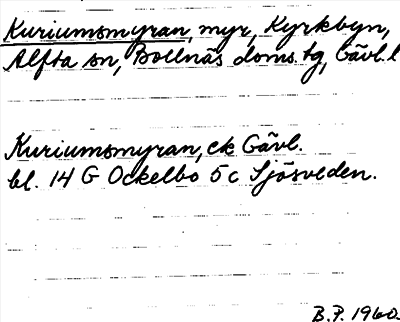 Kuriumsmyran, myr, Kyrkbyn,
Alfta sn, Bollnäs doms.tg, Gävl.l
Kuriumsmyran, ek Gävl.
bl. 14 G Ockelbo 5c Sjösveden.
B.P. 1960.